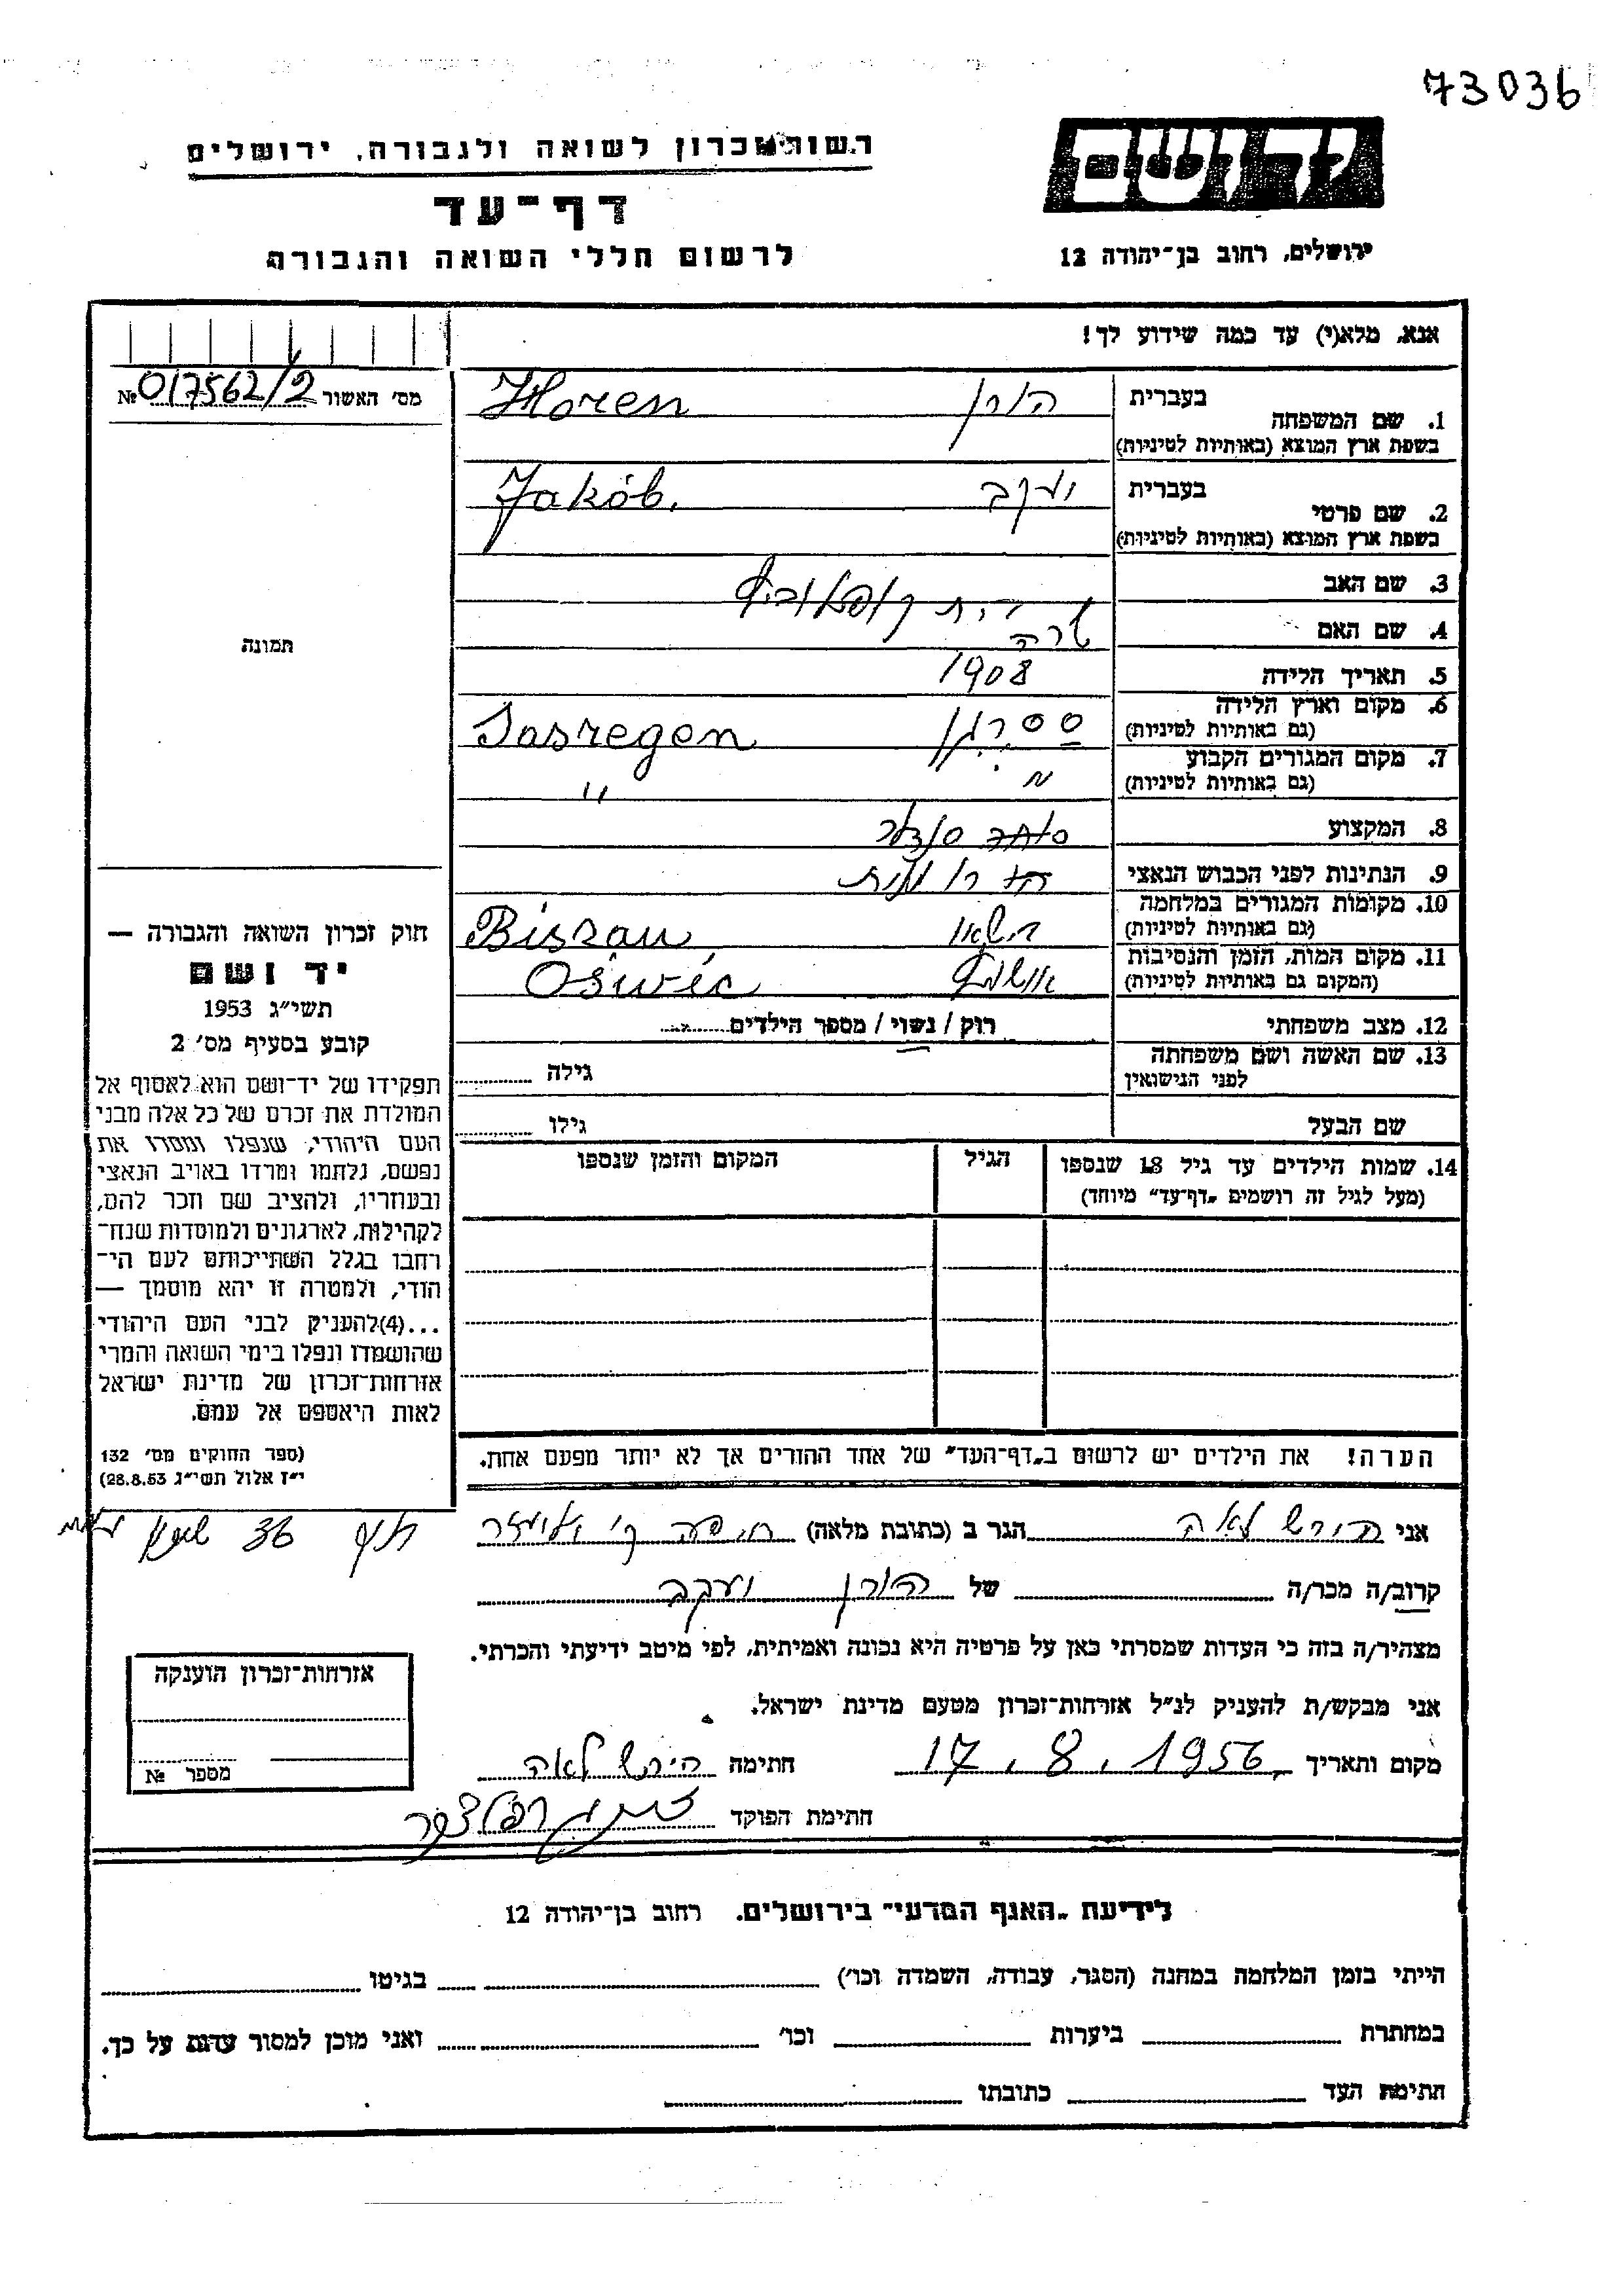 73036
יד ושם
רשות זכרון לשואה ולגבורה, ירושלים
דף־עד
לרשום חללי השואה והגבורה
ירושלים, רחוב בן־יהודה 12
אנא, מלא(י) עד כמה שידוע לך!
מס׳ האשור № 017562/2
תמונה
1. שם המשפחה בעברית הורן
בשפת ארץ המוצא (באותיות לטיניות) Horen
2. שם פרטי בעברית יעקב
בשפת ארץ המוצא (באותיות לטיניות) Jakób.
3. שם האב
4. שם האם שרה
5. תאריך הלידה 1908
6. מקום וארץ הלידה
(גם באותיות לטיניות) ססרגן Sasregen
7. מקום המגורים הקבוע
(גם באותיות לטיניות) " "
8. המקצוע
9. הנתינות לפני הכבוש הנאצי
10. מקומות המגורים במלחמה
(גם באותיות לטיניות) Biszau
11. מקום המות, הזמן והנסיבות
(המקום גם באותיות לטיניות) Ošwéc
12. מצב משפחתי רוק / נשוי / מספר הילדים
13. שם האשה ושם משפחתה
לפני הנישואין גילה
שם הבעל גילו
14. שמות הילדים עד גיל 18 שנספו
(מעל לגיל זה רושמים „דף־עד" מיוחד)
הגיל
המקום והזמן שנספו
הערה! את הילדים יש לרשום ב„דף־העד" של אחד ההורים אך לא יותר מפעם אחת.
חוק זכרון השואה והגבורה —
יד ושם
תשי״ג 1953
קובע בסעיף מס׳ 2
תפקידו של יד־ושם הוא לאסוף אל
המולדת את זכרם של כל אלה מבני
העם היהודי, שנפלו ומסרו את
נפשם, נלחמו ומרדו באויב הנאצי
ובעוזריו, ולהציב שם וזכר להם,
לקהילות, לארגונים ולמוסדות שנח־
רבו בגלל השתייכותם לעם הי־
הודי, ולמטרה זו יהא מוסמך —
...(4)להעניק לבני העם היהודי
שהושמדו ונפלו בימי השואה והמרי
אזרחות־זכרון של מדינת ישראל
לאות היאספם אל עמם.
(ספר החוקים מס׳ 132
י״ז אלול תשי״ג 28.8.53)
אני הירש לאה הגר ב (כתובת מלאה) חיפה ק׳ אליעזר
קרוב/ה מכר/ה של הורן יעקב
מצהיר/ה בזה כי העדות שמסרתי כאן על פרטיה היא נכונה ואמיתית, לפי מיטב ידיעתי והכרתי.
אני מבקש/ת להעניק לנ״ל אזרחות־זכרון מטעם מדינת ישראל.
מקום ותאריך 17.8.1956 חתימה הירש לאה
חתימת הפוקד
אזרחות־זכרון הוענקה
מספר №
לידיעת „האגף המדעי" בירושלים, רחוב בן־יהודה 12
הייתי בזמן המלחמה במחנה (הסגר, עבודה, השמדה וכו׳) בגיטו
במחתרת ביערות וכו׳ ואני מוכן למסור עדות על כך.
חתימת העד כתובתו